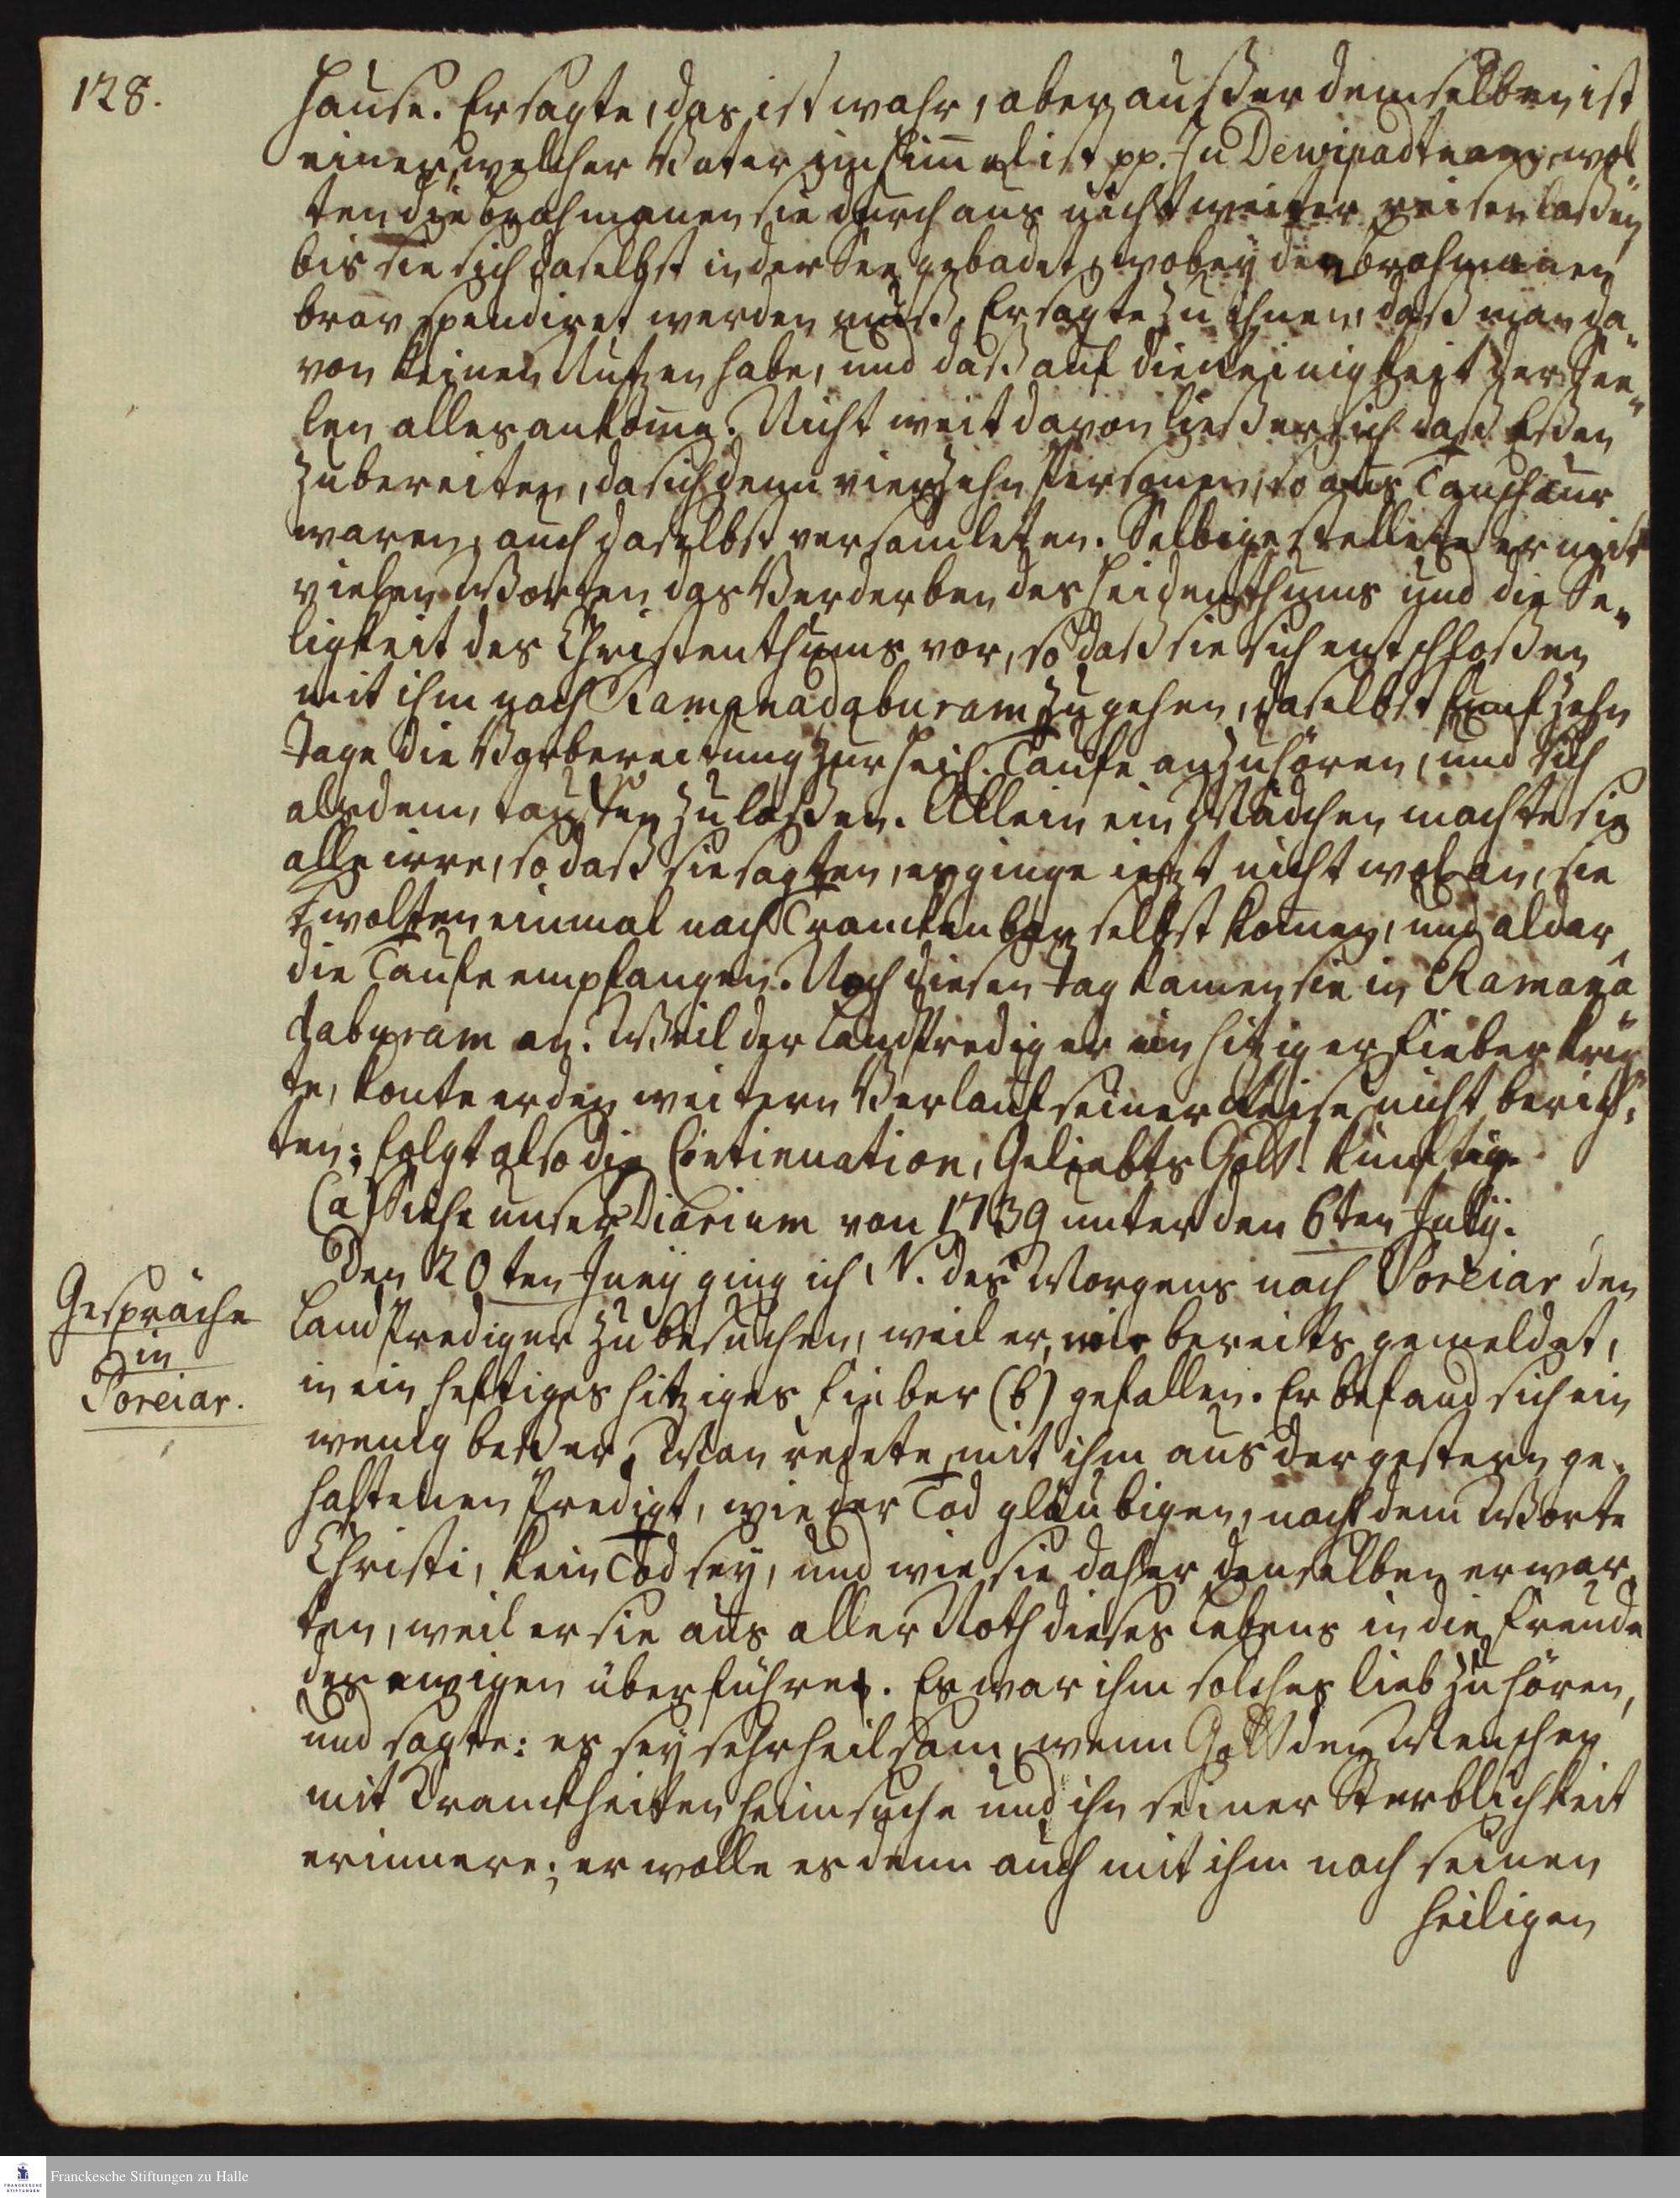 128.
Hause. Er sagte, das ist wahr, aber außer demselben ist
einer, welcher Vater im Himmel ist pp. In Dewipadtnam, wol-
ten die Brahmanen sie durchaus nicht weiter reisen laßen
bis sie sich daselbst in der See gebadet, wobey den Brahmanen
brav spendiret werden muß. Er sagte zu ihnen, daß man da-
von keinen Nutzen habe, und daß auf die Reinigkeit der See-
len alles ankome. Nicht weit davon ließ er sich daß Eßen
zubereiten, da sich denn vierzehn Personen, so aus Tanschaur
waren, auch daselbst versamleten. Selbige stellete er mit
vielen Worten das Verderben des Heidenthums und die Se-
ligkeit des Christenthums vor, so daß sie sich entschloßen
mit ihm nach Ramanadaburam zu gehen, daselbst funfzehn
Tage die Vorbereitung zur heil. Taufe anzuhören, und sich
alsdenn, tauffen zu laßen. Allein ein Mädchen machte sie
alle irre, so daß sie sagten, es ginge ietzt nicht wol an, sie
wolten einmal nach Tranckenbar selbst komen, und aldar
die Taufe empfangen. Noch diesen Tag kamen sie in Ramana-
daburam an. Weil der Landprediger ein hitziges Fieber krig-
te, konte er den weitern Verlauf seiner Reise nicht berich-
ten; folgt also die Continuation, Geliebts Gott! künftig.
(a) Siehe unser Diarium von 1739 unter den 6ten July.
Den 20ten Juny ging ich, N. des Morgens nach Poreiar den
Gespräche
in
Poreiar.
Landprediger zu besuchen, weil er, wie bereits gemeldet,
in ein heftiges hitziges Fieber (b) gefallen. Er befand sich ein
wenig beßer. Man redete mit ihm aus der gestern ge-
haltenen Predigt, wie der Tod gläubigen, nach dem Worte
Christi, kein Tod sey, und wie sie daher denselben erwar-
ten, weil er sie aus aller Noth dieses Lebens in die Freude
des ewigen überführet. Es war ihm solches lieb zu hören,
und sagte: es sey sehr heilsam, wenn Gott den Menschen
mit Kranckheiten heimsuche und ihn seiner Sterblichkeit
erinnere; er wolle es denn auch mit ihm nach seinen
heiligen
Franckesche Stiftungen zu Halle